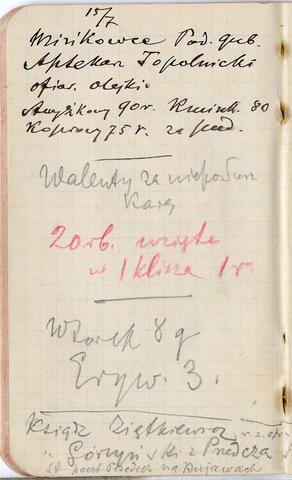 15/7
Minkowce Pod. gub.
Aptekarz Topolnicki
ofiar. olejki
Anyżkowy 90 r. Kmink. 80
Koprowy 75 r. za pud.
Walenty za nieposłusz
karę
20 rb. wzięte
w 1 klisza 1 r
Wtorek 8 g
Eryw. 3.
Ksiądz Ziętkiewicz
" Górzyński z Przedcza
st. poczt Przedecz na Kujawach